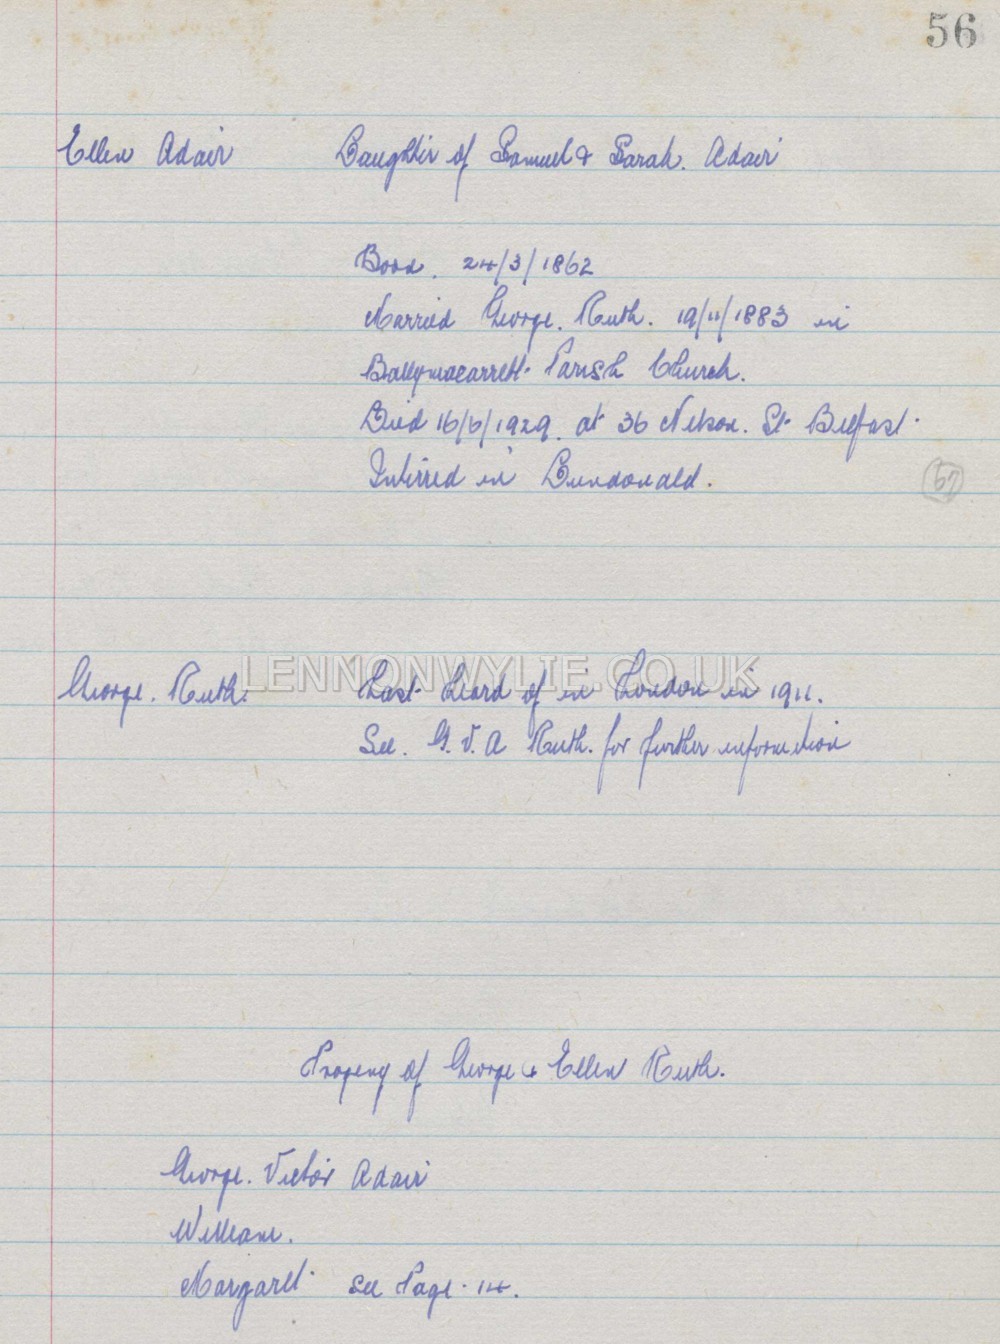 56
Ellen Adair Daughter of Samuel & Sarah. Adair
Born. 24/3/1862
Married George. Ruth. 19/11/1883 in
Ballymacarrett Parish Church.
Died 16/6/1929. at 36 Nelson. St Belfast.
Interred in Dundonald.
57
LENNONWYLIE.CO.UK
George. Ruth. Last heard of in London in 1911.
See. G. V. A Ruth. for further information
Progeny of George & Ellen Ruth.
George. Victor Adair
William.
Margaret. See Page. 14.